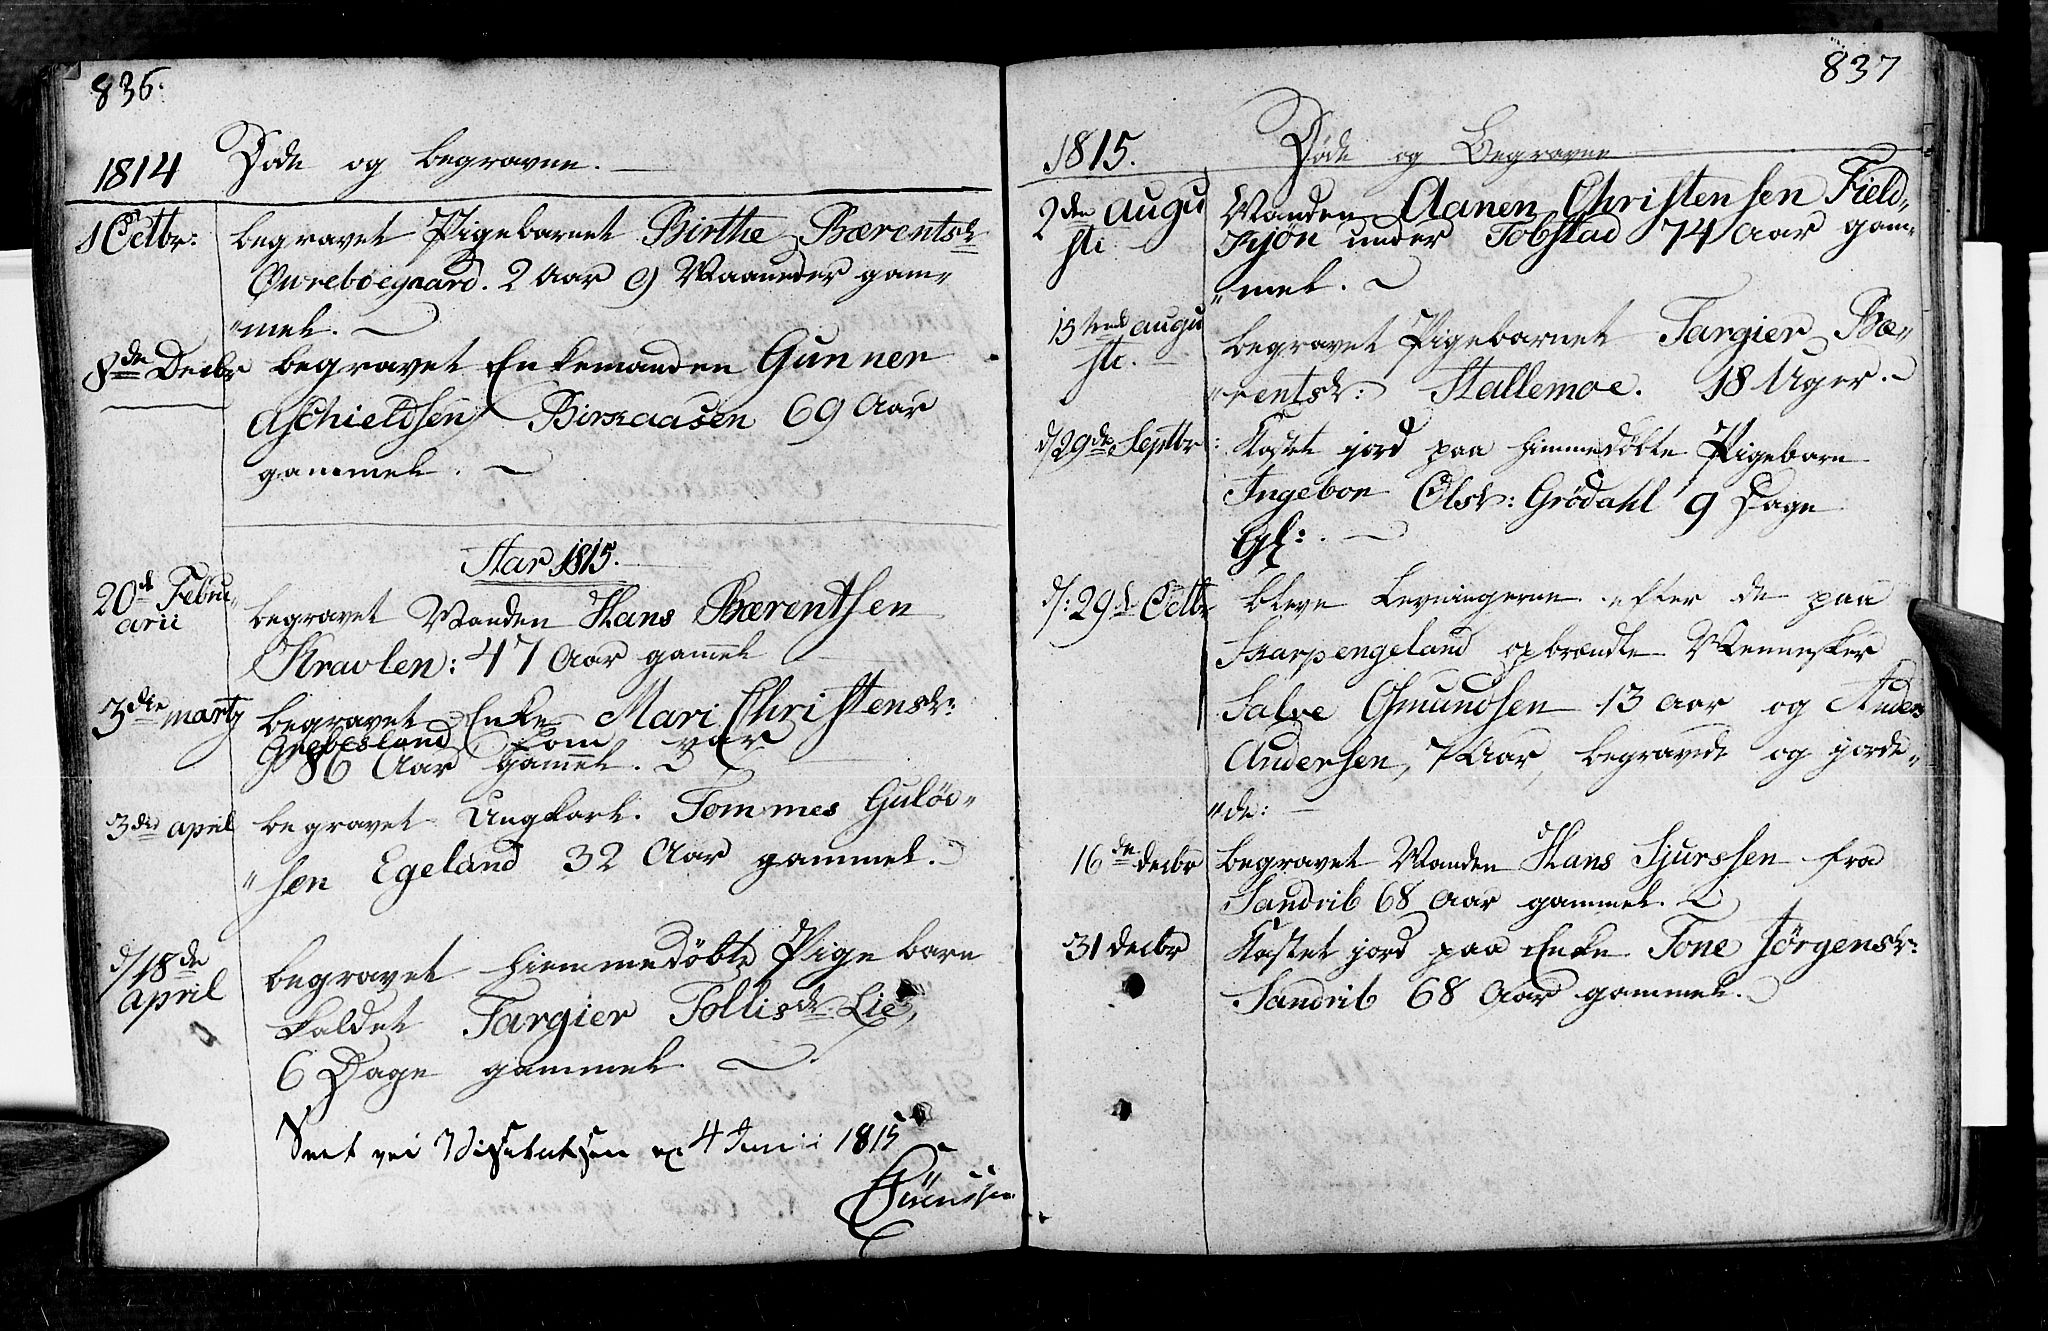 836.
1814 Døde og begravne.
1 Octbr: begravet Pigebarnet Birthe Bærentsdr
Øwrebøegaard. 2 Aar 9 Maaneder gam„
„mel.
8de Decbr begravet Enkemanden Gunner
Aschieldsen Birkaasen 69 Aar
gammel.
Aar 1815.
20d Febru„
arii begravet Manden Hans Bærentsen
Kravlen: 47 Aar gamel
3die marty begravet Enke Mari Christensdr:
Grebesland som var
86 Aar gamel.
3die april begravet Ungkarl Tommes Guløv„
„sen Egeland 32 Aar gammel.
d/18de
april begravet hiemmedøbte Pigebarn
kaldet Targier Tollisdr. Lie,
6 Dage gammel.
Seet ved Visitatsen 4 Junii 1815
837
1815. Døde og Begravne
2den Augu
sti Manden Aanen Christensen Field„
kjøn under Tobstad 74 Aar gam„
„mel.
15tende augu
sti. begravet Pigebarnet Targier Bæ„
„rentsdr: Stallemoe. 18 Uger.
d/29de Septbr: Kastet jord paa hiemmedøbte Pigebarn
Ingebor Olsdr: Grødahl 9 Dage
Gl:.
d/: 29d Octbr bleve Levningerne efter de paa
Skarpengeland opbrændte Mennesker
Salve Osmundsen 13 Aar og Anders
Andersen, 7 Aar, begravede og jorde„
„de:
16de decbr begravet Manden Hans Sjurssen fra
Sandrib 68 Aar gammel.
31 decbr Kastet jord paa Enke Tone Jörgensdr:
Sandrib 68 Aar gammel.